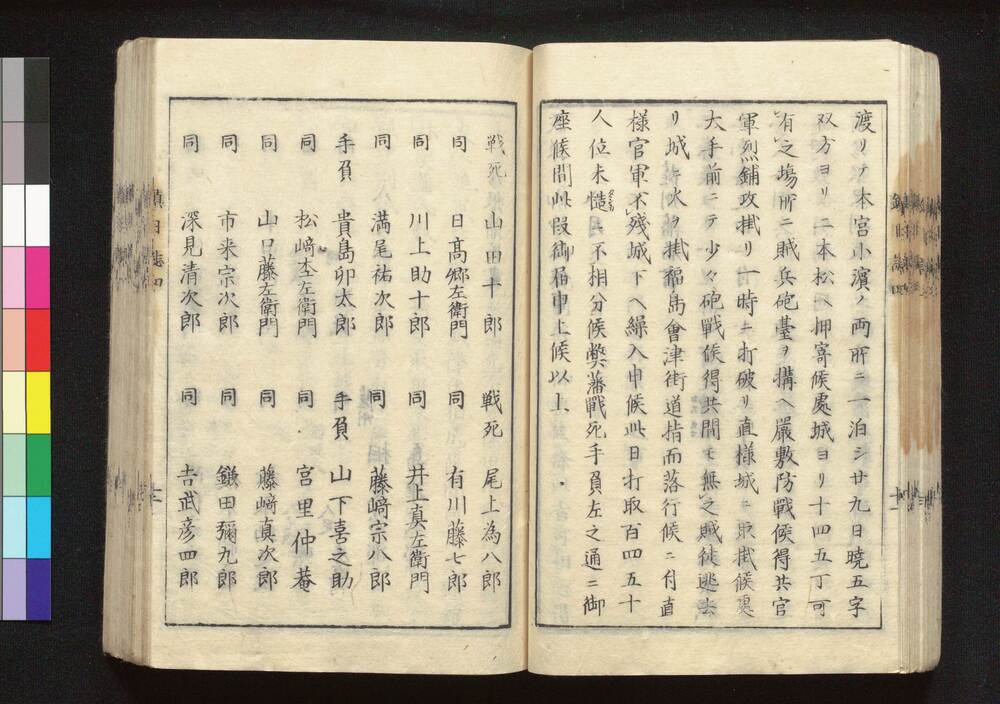 渡リテ本宮小濱ノ両所ニ一泊シ廿九日暁五字
双方ヨリ二本松ヘ押寄候處城ヨリ十四五丁可
有之場所ニ賊兵砲臺ヲ搆ヘ嚴敷防戰候得共官
軍烈鋪攻掛リ一時ニ打破リ直様城ニ取掛候裏
大手前ニテ少々砲戰候得共間モ無之賊徒迯去
リ城ニ火ヲ掛福島會津街道指而落行候ニ付直
様官軍不残城下ヘ繰入申候此日打取百四五十
人位未慥ニ不相分候弊藩戰死手負左之通ニ御
座候間此段御届申上候以上
戦死 山田十郎 戦死 尾上為八郎
同 日高郷左衛門 同 有川藤七郎
同 川上助十郎 同 井上真左衛門
同 満尾祐次郎 同 藤﨑宗八郎
手負 貴島卯太郎 手負 山下喜之助
同 松﨑杢左衛門 同 宮里仲菴
同 山口藤左衛門 同 藤﨑真次郎
同 市来宗次郎 同 鎌田彌九郎
同 深見清次郎 同 吉武彦四郎